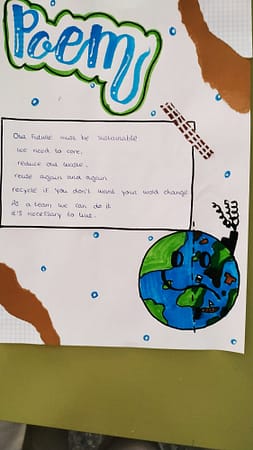 Poem
Our future must be sustainable
we need to care.
reduce our waste.
reuse again and again
recycle if you don't want your world change
As a team we can do it
it's necessary to live.